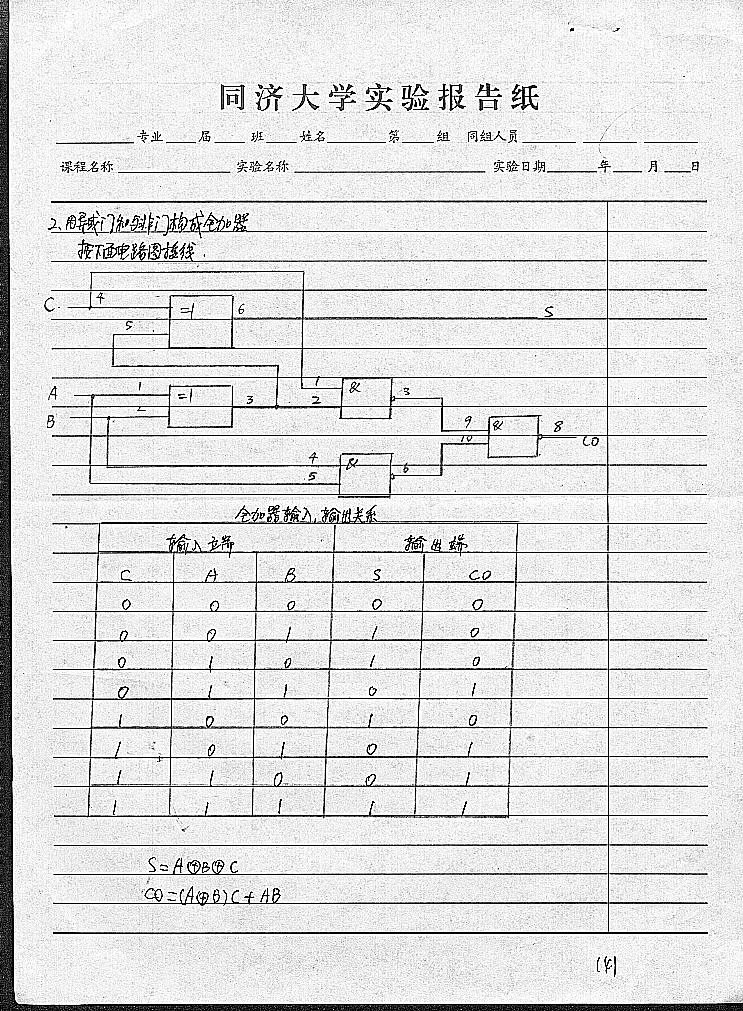 同济大学实验报告纸
专业 届 班 姓名 第 组 同组人员
课程名称 实验名称 实验日期 年 月 日
2、用异或门和与非门构成全加器
按下面电路图接线.
C 4 =1 6 S
5
A 1 =1 3 1 & 3
B 2 2 9 & 8 CO
10
4 & 6
5
全加器输入,输出关系
输入端 输出端
C A B S CO
0 0 0 0 0
0 0 1 1 0
0 1 0 1 0
0 1 1 0 1
1 0 0 1 0
1 0 1 0 1
1 1 0 0 1
1 1 1 1 1
S=A⊕B⊕C
CO=(A⊕B)C+AB
(4)